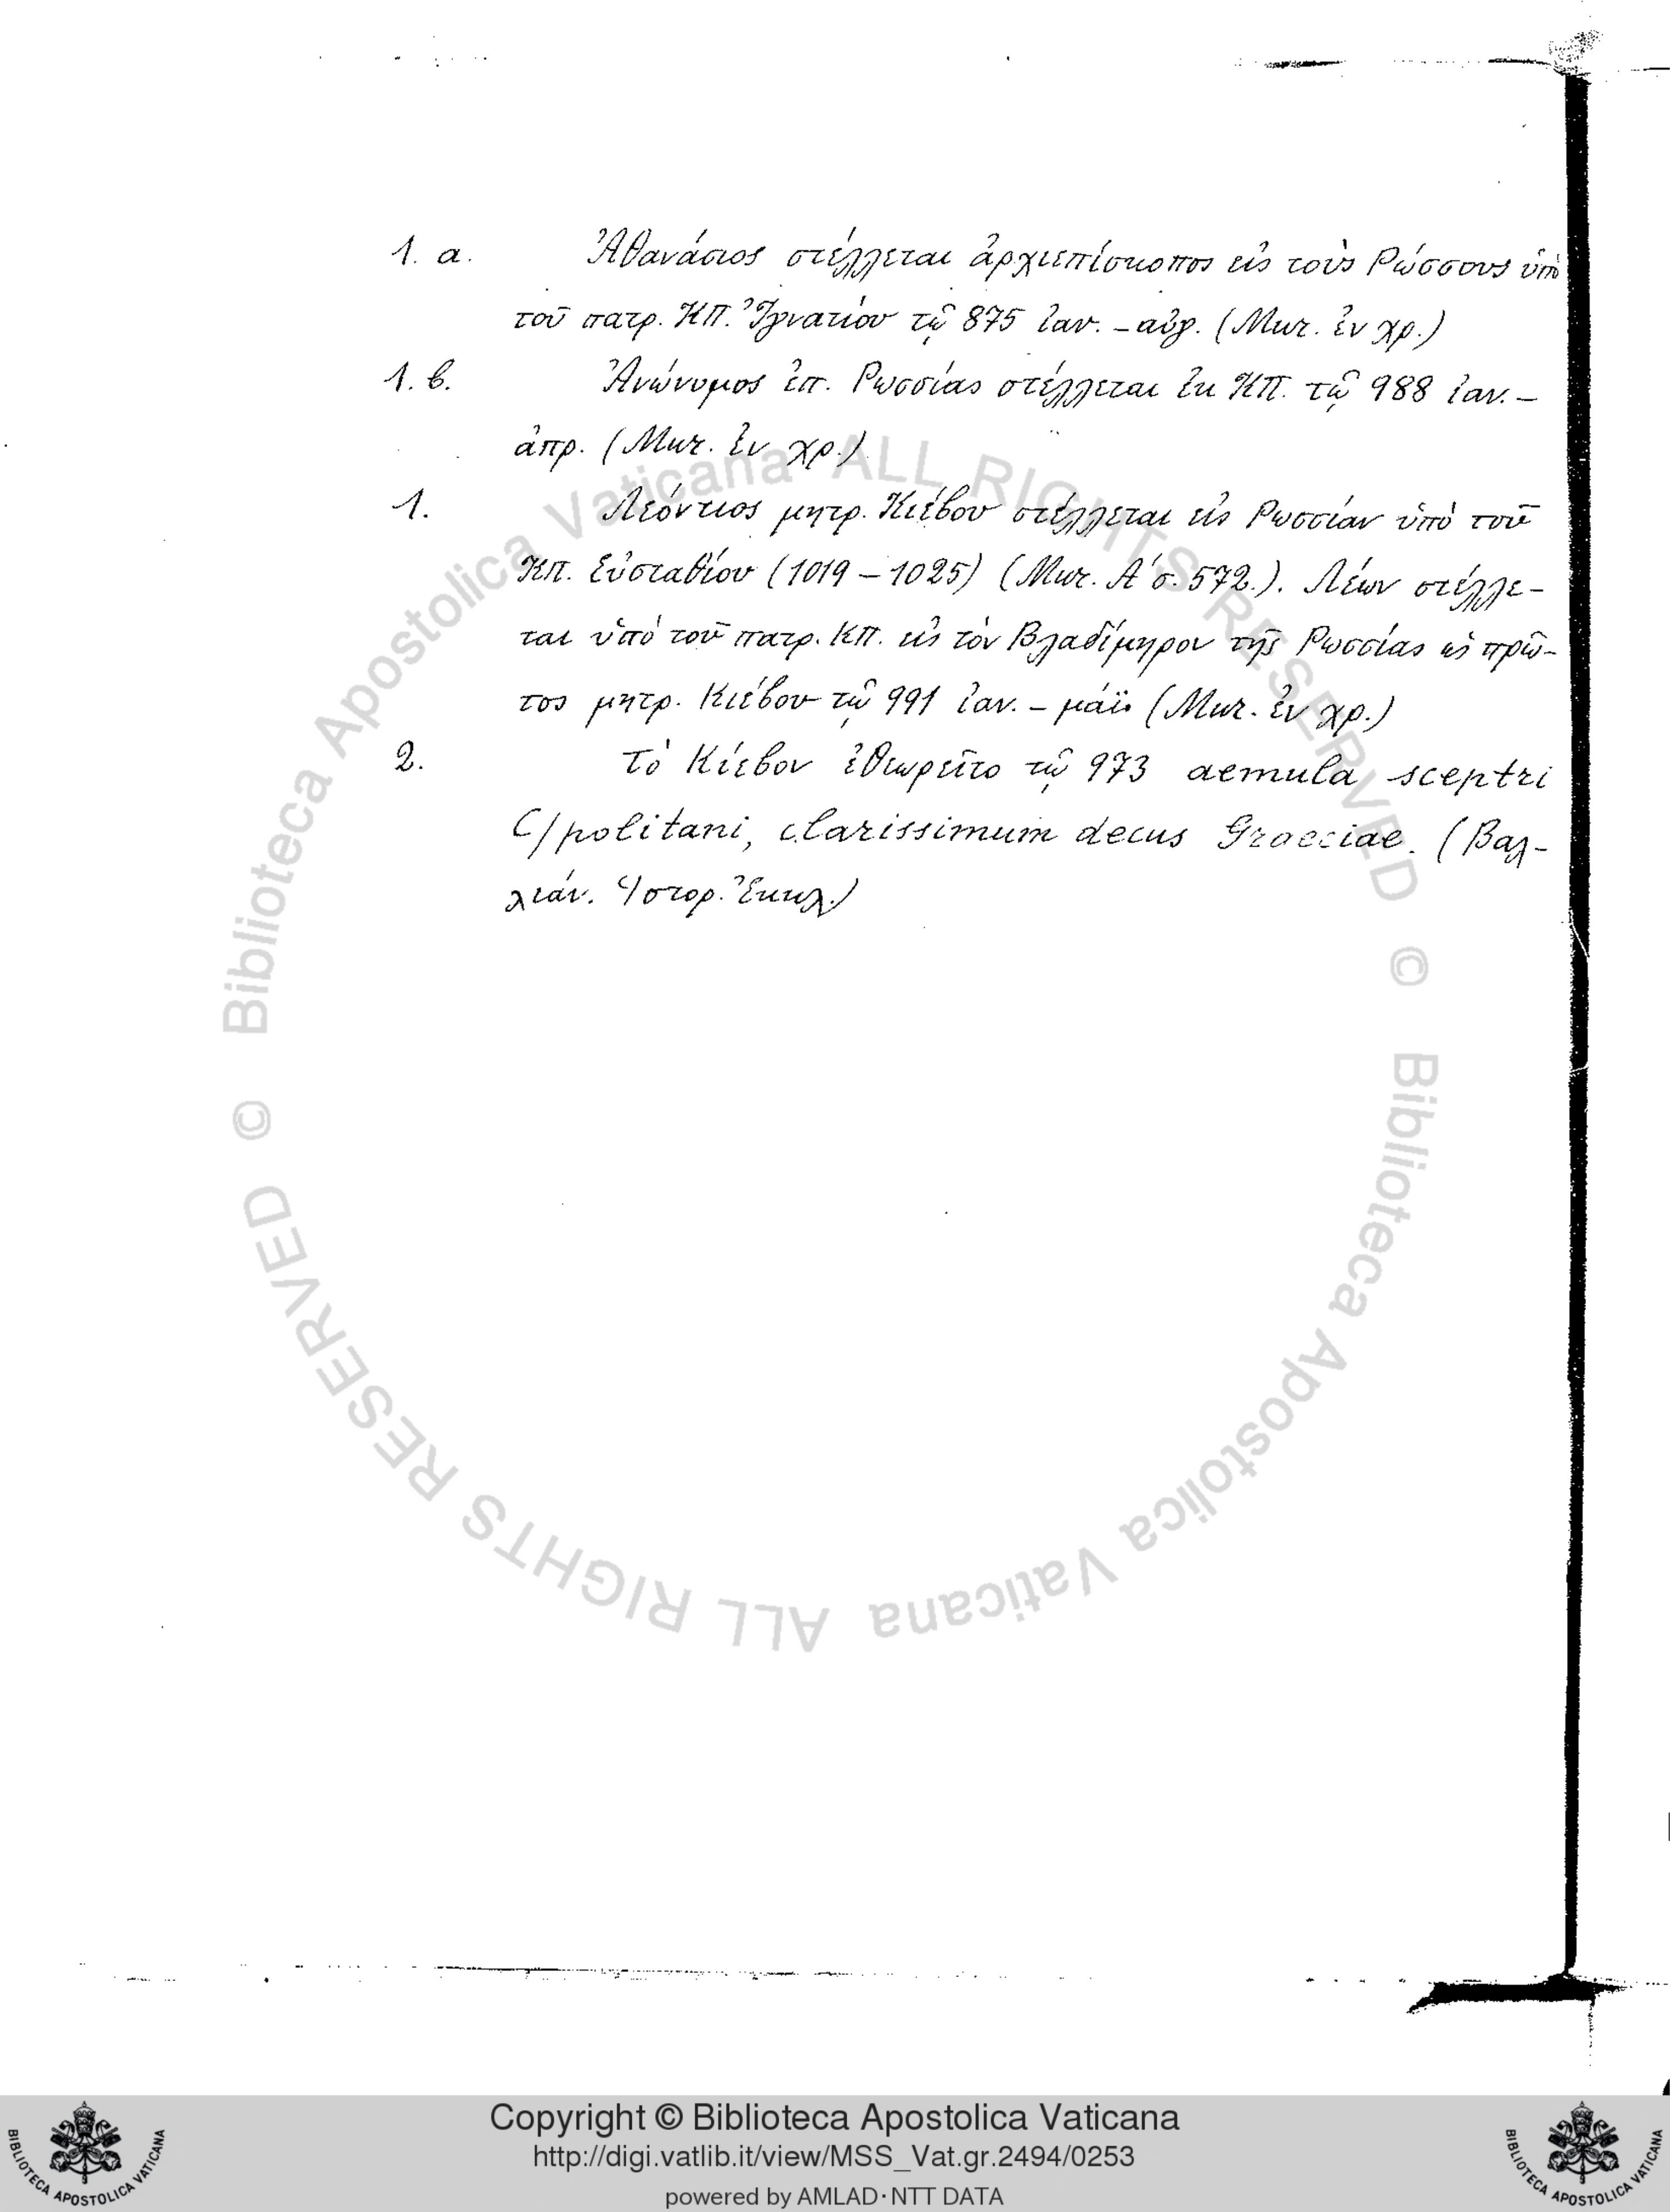 1. α. Ἀθανάσιος στέλλεται ἀρχιεπίσκοπος εἰς τοὺς Ρώσσους ὑπὸ
τοῦ πατρ. ΚΠ. Ἰγνατίου τῷ 875 ἰαν. – αὐγ. (Μικ. ἐν χρ.)
1. β. Ἀνώνυμος ἐπ. Ρωσσίας στέλλεται ἐκ ΚΠ. τῷ 988 ἰαν. –
ἀπρ. (Μικ. ἐν χρ.)
1. Λεόντιος μητρ. Κιέβου στέλλεται εἰς Ρωσσίαν ὑπὸ τοῦ
ΚΠ. Εὐσταθίου (1019 – 1025) (Μικ. Α΄ σ. 572.). Λέων στέλλε-
ται ὑπὸ τοῦ πατρ. ΚΠ. εἰς τὸν Βλαδίμηρον τῆς Ρωσσίας ὡς πρῶ-
τος μητρ. Κιέβου τῷ 991 ἰαν. – μάϊ. (Μικ. ἐν χρ.)
2. Τὸ Κίεβον ἐθεωρεῖτο τῷ 973 aemula sceptri
C/politani, clarissimum decus Graeciae. (Βαλ-
λιάν. Ἱστορ. Ἐκκλ.)
© Biblioteca Apostolica Vaticana ALL RIGHTS RESERVED
© Biblioteca Apostolica Vaticana ALL RIGHTS RESERVED
Copyright © Biblioteca Apostolica Vaticana
http://digi.vatlib.it/view/MSS_Vat.gr.2494/0253
powered by AMLAD·NTT DATA
BIBLIOTECA APOSTOLICA VATICANA
BIBLIOTECA APOSTOLICA VATICANA